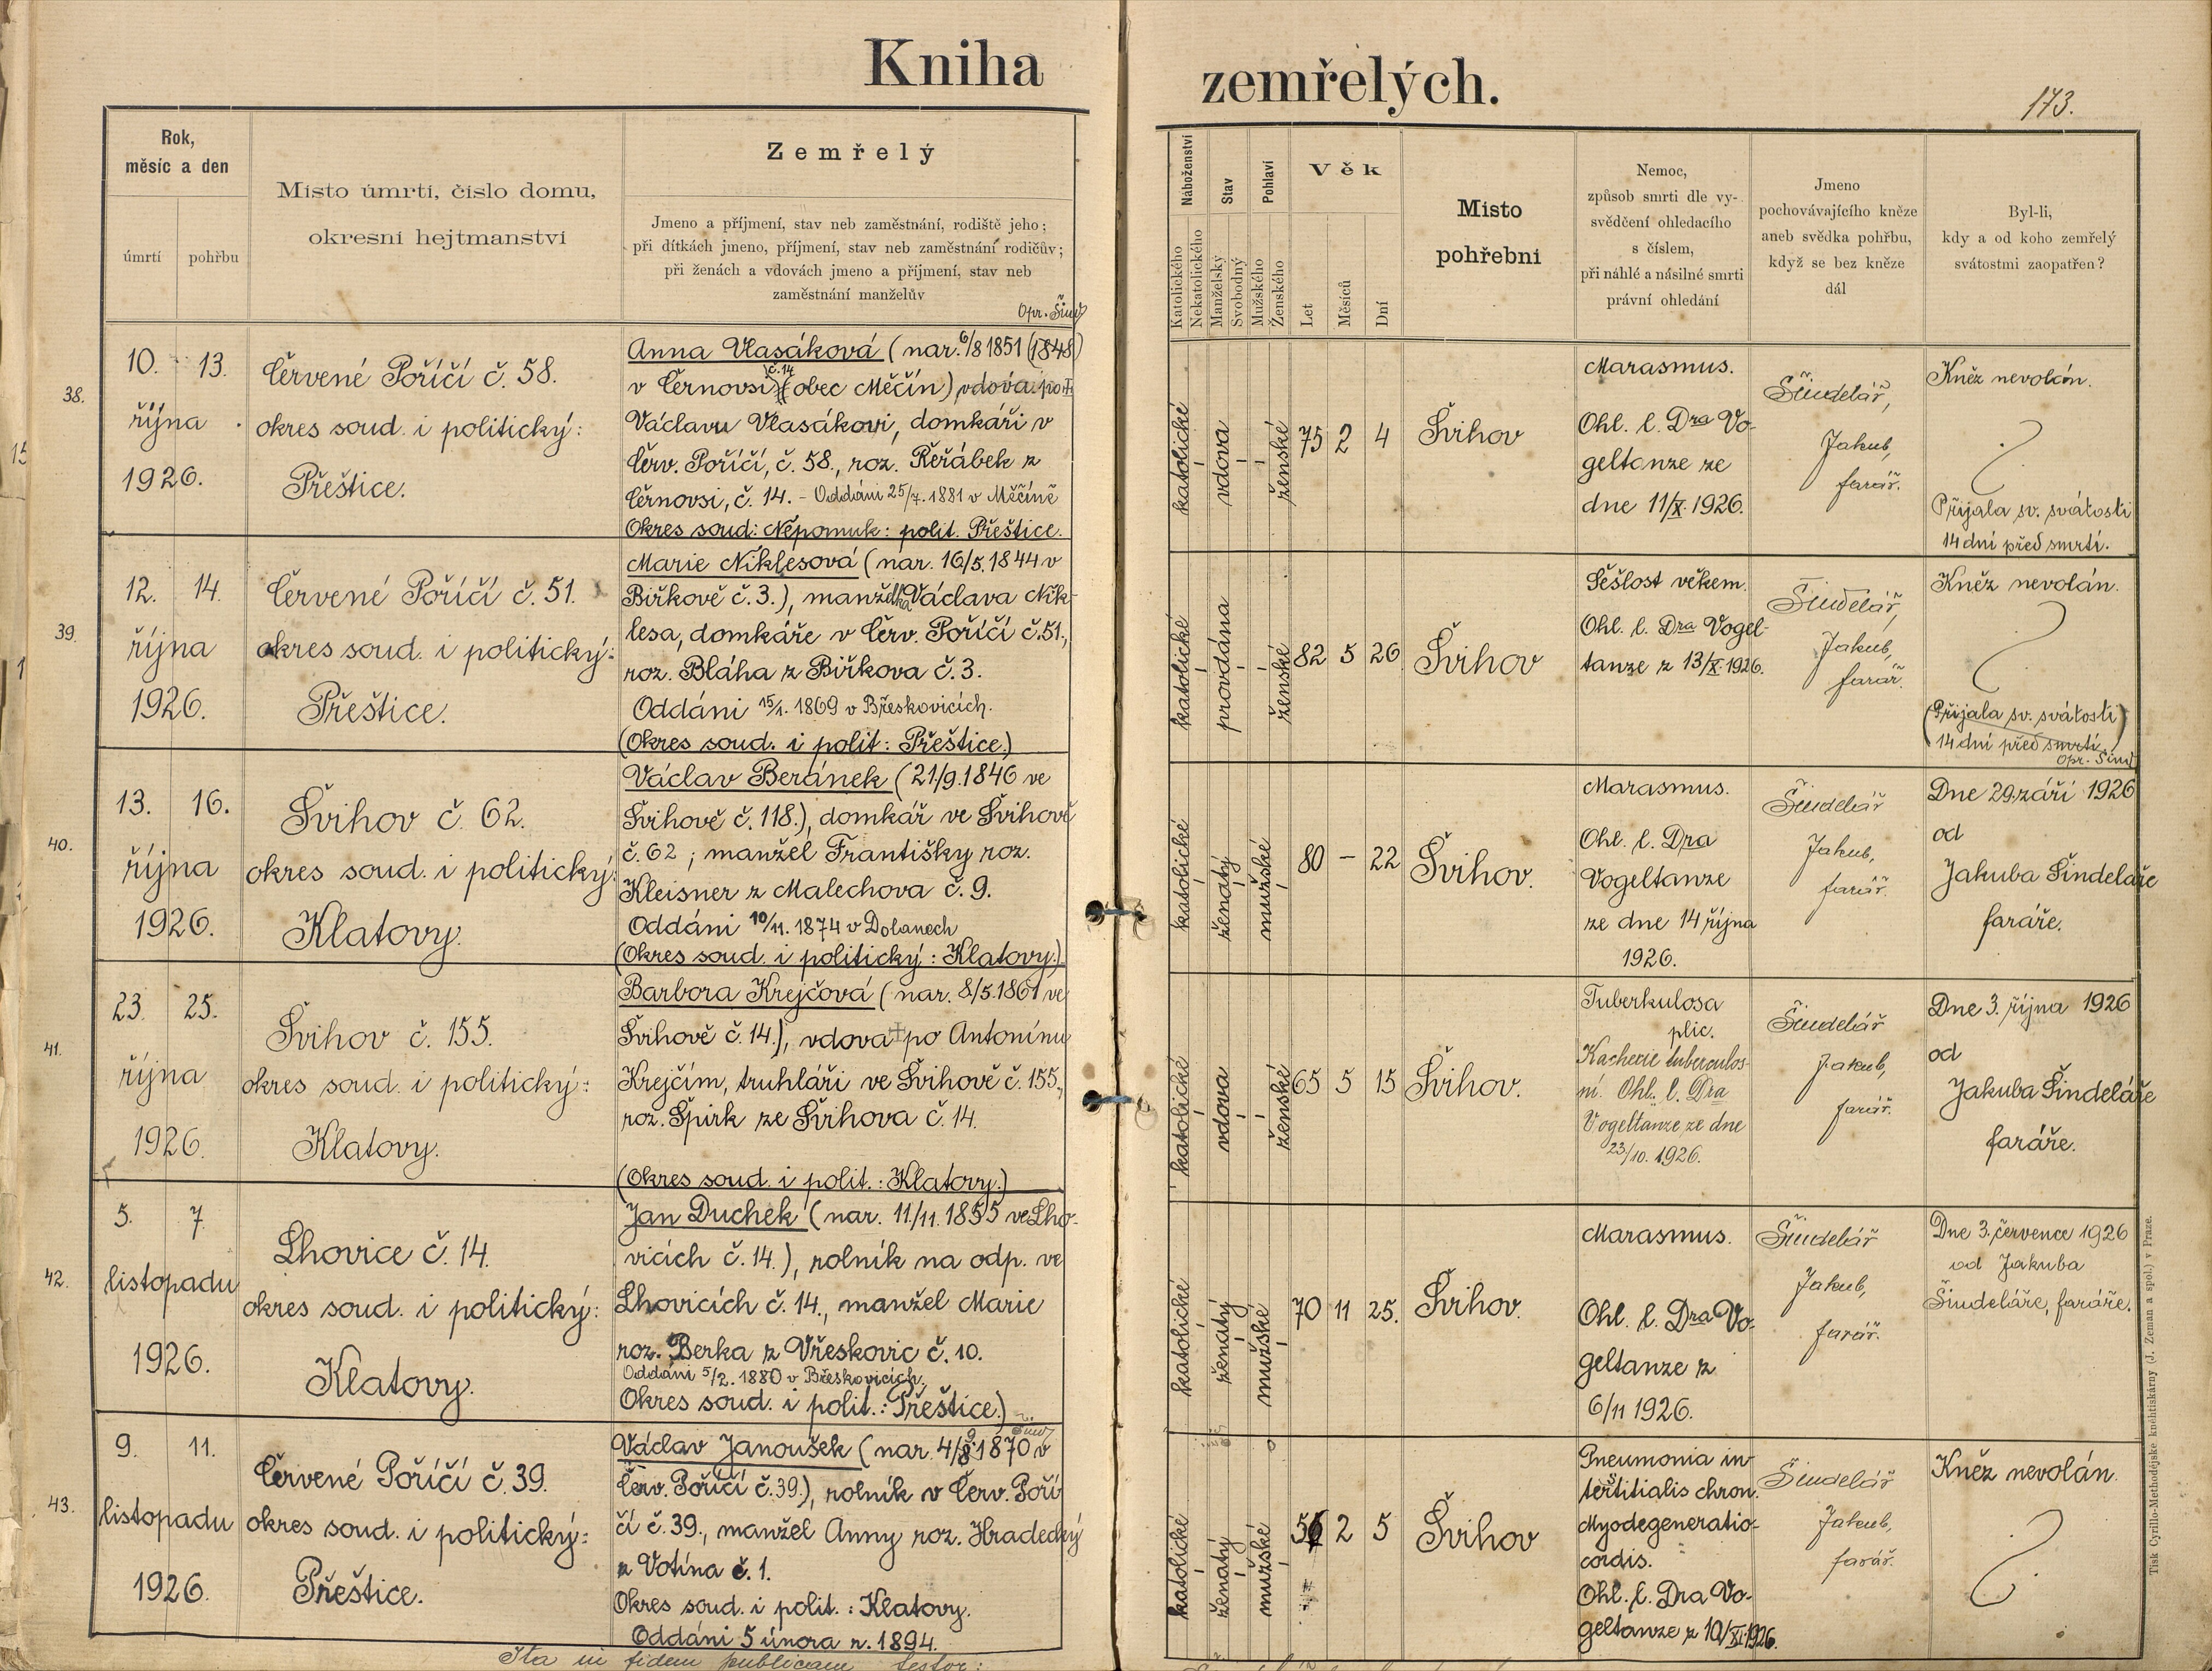 Kniha zemřelých.
173.
Rok,
měsíc a den
úmrtí
pohřbu
Místo úmrtí, číslo domu,
okresní hejtmanství
Zemřelý
Jmeno a příjmení, stav neb zaměstnání, rodiště jeho;
při dítkách jmeno, příjmení, stav neb zaměstnání rodičův;
při ženách a vdovách jmeno a příjmení, stav neb
zaměstnání manželův
Náboženství
Katolického
Nekatolického
Stav
Manželský
Svobodný
Pohlaví
Mužského
Ženského
Věk
Let
Měsíců
Dní
Místo
pohřební
Nemoc,
způsob smrti dle vy-
svědčení ohledacího
s číslem,
při náhlé a násilné smrti
právní ohledání
Jmeno
pochovávajícího kněze
aneb svědka pohřbu,
když se bez kněze
dál
Byl-li,
kdy a od koho zemřelý
svátostmi zaopatřen?
38.
10. 13.
října
1926.
Červené Poříčí č. 58.
okres soud. i politický:
Přeštice.
Opr. Šind
Anna Vlasáková (nar. 6/8 1851 (1848)
v Černovsi č. 14 (obec Měčín) vdova po
Václavu Vlasákovi, domkáři v
Červ. Poříčí, č. 58., roz. Řeřábek z
Černovsi, č. 14. - Oddáni 25/7. 1881 v Měčíně
Okres soud: Nepomuk: polit. Přeštice.
katolické
vdova
ženské
75 2 4
Švihov
Marasmus.
Ohl. l. Dra Vo-
geltanze ze
dne 11/X. 1926.
Šindelář,
Jakub,
farář.
Kněz nevolán.
?
Přijala sv. svátosti
14 dní před smrtí.
39.
12. 14.
října
1926.
Červené Poříčí č. 51.
okres soud. i politický:
Přeštice.
Marie Niklesová (nar. 16/5. 1844 v
Biřkově č. 3.), manželka Václava Nik-
lesa, domkáře v Červ. Poříčí č. 51.,
roz. Bláha z Biřkova č. 3.
Oddáni 15/1. 1869 v Břeskovicích.
(Okres soud. i polit: Přeštice.)
katolické
provdána
ženské
82 5 26
Švihov
Sešlost věkem.
Ohl. l. Dra Vogel-
tanze z 13/X 1926.
Šindelář,
Jakub,
farář.
Kněz nevolán.
?
(Přijala sv. svátosti)
14 dní před smrtí.
Opr. Šind
40.
13. 16.
října
1926.
Švihov č. 62.
okres soud. i politický:
Klatovy.
Václav Beránek (21/9. 1846 ve
Švihově č. 118.), domkář ve Švihově
č. 62; manžel Františky roz.
Kleisner z Malechova č. 9.
Oddáni 10/11. 1874 v Dolanech
(Okres soud. i politický: Klatovy.)
katolické
ženatý
mužské
80 - 22
Švihov.
Marasmus.
Ohl. l. Dra
Vogeltanze
ze dne 14 října
1926.
Šindelář
Jakub,
farář.
Dne 29. září 1926
od
Jakuba Šindeláře
faráře.
41.
23. 25.
října
1926.
Švihov č. 155.
okres soud. i politický:
Klatovy.
Barbora Krejčová (nar. 8/5. 1861 ve
Švihově č. 14.), vdova po Antonínu
Krejčím, truhláři ve Švihově č. 155.,
roz. Špirk ze Švihova č. 14.
(Okres soud. i polit.: Klatovy.)
katolické
vdova
ženské
65 5 15
Švihov.
Tuberkulosa
plic.
Kacherie tuberculos-
ní. Ohl. l. Dra
Vogeltanze ze dne
23/10. 1926.
Šindelář
Jakub,
farář.
Dne 3. října 1926
od
Jakuba Šindeláře
faráře.
42.
5. 7.
listopadu
1926.
Lhovice č. 14.
okres soud. i politický:
Klatovy.
Jan Duchek (nar. 11/11. 1855 ve Lho-
vicích č. 14.), rolník na odp. ve
Lhovicích č. 14., manžel Marie
roz. Berka z Vřeskovic č. 10.
Oddáni 5/2. 1880 v Břeskovicích.
Okres soud. i polit.: Přeštice.)
katolické
ženatý
mužské
70 11 25.
Švihov.
Marasmus.
Ohl. l. Dra Vo-
geltanze z
6/11 1926.
Šindelář
Jakub,
farář.
Dne 3. července 1926
od Jakuba
Šindeláře, faráře.
43.
9. 11.
listopadu
1926.
Červené Poříčí č. 39.
okres soud. i politický:
Přeštice.
Václav Janoušek (nar. 4/9. 1870 v
Červ. Poříčí č. 39.), rolník v Červ. Poří
čí č. 39., manžel Anny roz. Hradecký
z Votína č. 1.
Okres soud. i polit.: Klatovy.
Oddáni 5 února r. 1894.
katolické
ženatý
mužské
56 2 5
Švihov
Pneumonia in-
terštitialis chron.
Myodegeneratio-
cordis.
Ohl. l. Dra Vo-
geltanze z 10/XI. 1926.
Šindelář
Jakub,
farář.
Kněz nevolán.
?
Ita in fidem publicam testor:
Tisk Cyrillo-Methodějské knihtiskárny (J. Zeman a spol.) v Praze.